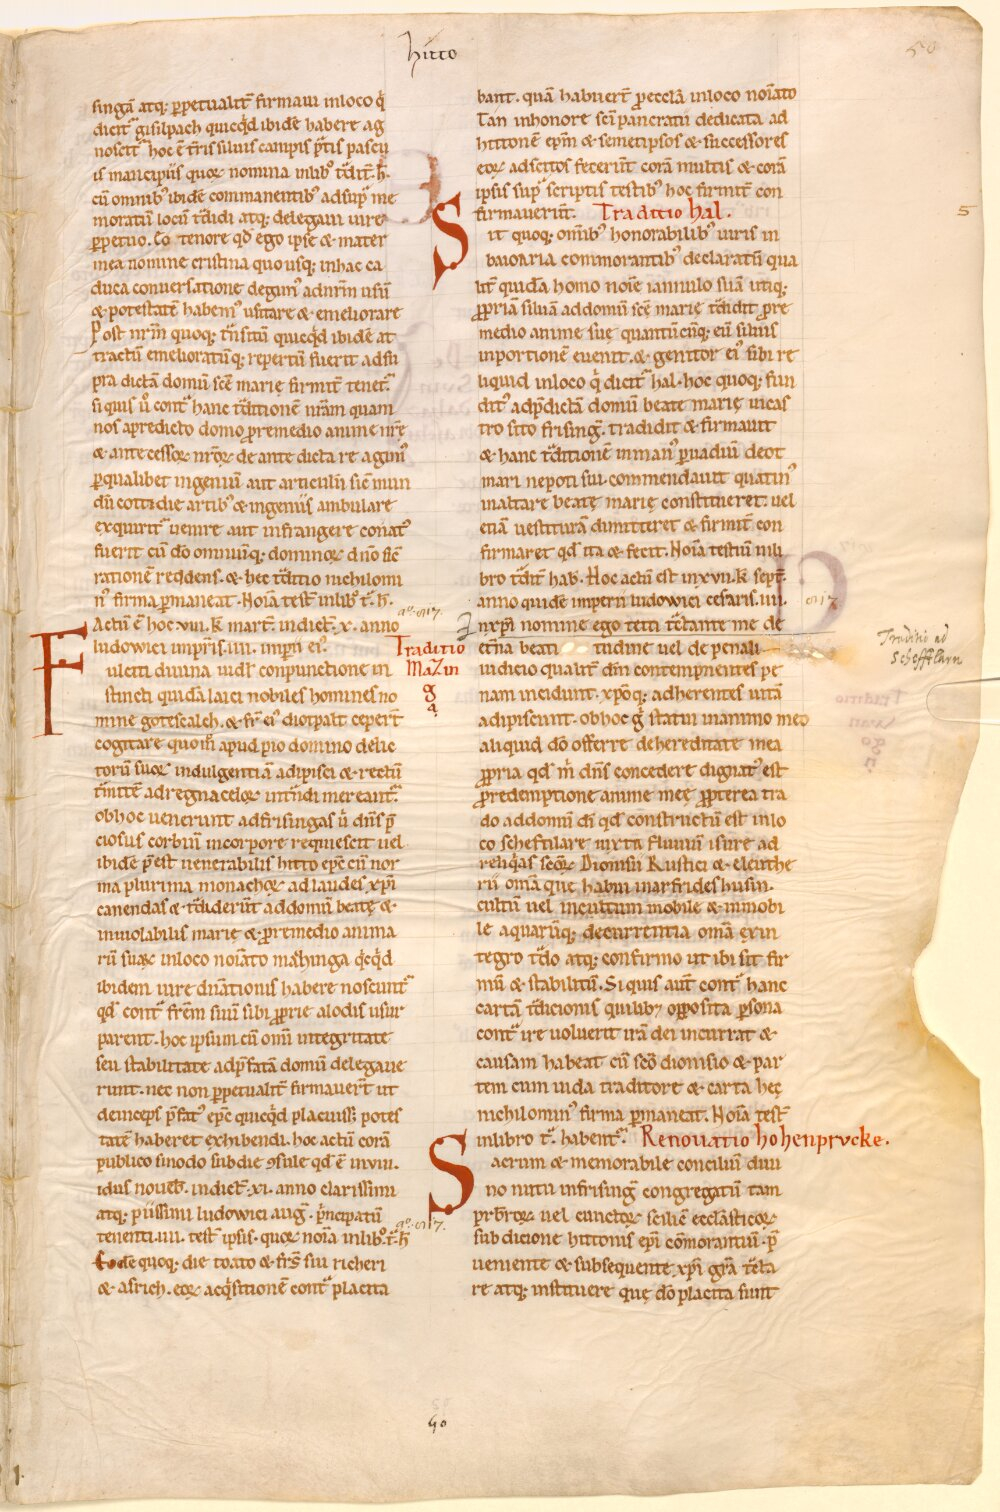 hitto
50
singā atq; ꝑpetualit̄ firmaui inloco q̇
dicit᷑ gisilpach quicq̇d ibidē habere ag
noscit᷑ hoc ē t̄ris siluis campis p̄tis pascu
is mancipiis quoꝝ nomina inlib᷒ t᷑dit᷑.h̄.
cū omnib᷒ ibidē commanentib᷒ adsup᷑ me
moratū locū t᷑didi atq; delegaui iure
ꝑpetuo. Eo tenore qd̄ ego ipse & mater
mea nomine cristina quo usq; inhac ca
duca conuersatione degim᷒ adnr̄m usū
& potestatē habem᷒ usitare & emeliorare
Post nr̄m quoq; t᷑nsitū quicq̇d ibidē at
tractū emelioratūq; repertū fuerit adsu
pra dictā domū scē marię firmit̄ tenet᷑.
si quis u̇ cont᷑ hanc t᷑ditionē nr̄am quam
nos apredicto domo ꝓremedio anime nr̄e
& ante cessoꝝ nr̄oꝝ de ante dicta re agim᷒
ꝑqualibet ingeniū aut articulū sic̄ mun
dū cottidie artib᷒ & ingeniis ambulare
exquirit᷑ uenire aut infrangere conat᷒
fuerit cū dō omniūq; dominoꝝ dn̄o sic̄
rationē reddens. & hec t᷑ditio nichilomi
n᷒ firma ꝑmaneat. Noīa test̄ inlib᷒ t᷑.h̄.
Actū ē hoc uiii. k̄ mart̄. indict̄. x. anno
ludowici impr̄is. iiii. impii ei᷒.
aº. 817.
Traditio
Mazin
g
a.
Fuleiti diuina uidl̄ conpunctione in
stincti quidā laici nobiles homines no
mine gotescalch. & fr̄ ei᷒ diotpalt ceper̄t
cogitare quom̊ apud pio domino delic
torū suoꝝ indulgentiā adipisci & rectū
t᷑mitē adregna celoꝝ int᷑ndi mereant᷑.
obhoc uenerunt adfrisingas u̇ dn̄s p̄
ciosus corbiniꝰ incorpore requiescit uel
ibidē p̄est uenerabilis hitto epc̄ cū nor
ma plurima monachoꝝ ad laudes xp̄i
canendas & t᷑diderūt addomū beatę &
inuiolabilis marię & ꝓremedio anima
rū suaꝝ inloco noīato mashinga q̇cq̇d
ibidem iure dn̄ationis habere noscunt᷑
qd̄ cont᷑ fr̄em suū sibi ꝓprie alodis usur
parent. hoc ipsum cū om̄i integritate
seu stabilitate adp̄fatā domū delegaue
runt. nec non ꝑpetualit̄ firmauer̄t ut
deinceps p̄fat᷒ epc̄ quicq̇d placuiss; potes
tatē haberet exhibendi. hoc actū corā
publico sinodo subdie ꝯsule qd̄ ē inuiii.
idus noueb̄. indict̄. xi. anno clarissimi
atq; piissimi ludowici aug᷑. p̄ncipatū
tenenti. iiii. test̄ ipsis. quoꝝ noīa inlib᷒.t᷑.h̄
aº. 817.
Eodē quoq; die toato & fr̄s sui richeri
& asrich. eoꝝ acq̇sitionē cont᷑ placita
bant. quā habuer̄t ꝓ ecclā inloco noīato
Tan inhonore scī pancratii dedicata ad
hittonē epm̄ & semetipsos & successores
eoꝝ adscitos fecer̄t corā multis & corā
ipsis sup᷑ scriptis testib᷒ hoc firmit̄ con
firmauer̄t. Traditio hal.
5
Sit quoq; om̄ib᷒ honorabilib᷒ uiris in
baioaria commorantib᷒ declaratū qua
lit̄ quidā homo noīe iannulo suā utiq;
ꝓpriā siluā addomū scē marię t᷑didit ꝓre
medio anime suę quantūcūq; eū siluis
inportionē euenit. & genitor ei᷒ sibi re
liquid inloco q̇ dicit᷑ hal. hoc quoq; fun
dit᷒ adp̄dictā domū beate marię uicas
tro sito frising᷑. tradidit & firmauit
& hanc t᷑ditionē inman᷒ ꝑuadiū deot
mari nepoti sui. commendauit quatin᷒
inaltare beatę marię constitueret. uel
etiā uestiturā dimitteret & firmit̄ con
firmaret qd̄ ita & fecit. Noīa testiū inli
bro t᷑dit̄ hab̄. Hoc actū est inxuii. k̄ sept̄.
anno quidē imperii ludowici cesaris. iiii.
817.
Inxp̄i nomine ego teiti t᷑ctante me de
etn̄a beati tudine uel de penali
Traditio ad
Schefftlarn
iudicio qualit̄ dīm contempnentes pe
nam incidunt. xp̄oq; adherentes uitā
adipiscunt. obhoc g̊ statui inanimo meo
aliquid dō offerre dehereditate mea
ꝓpria qd̄ m̊ dn̄s concedere dignat᷒ est
ꝓredemptione anime meę ꝓpterea tra
do addomū dī qd̄ constructū est inlo
co sceftilare iuxta fluuiū isure ad
reliq̇as scōꝝ Dionisii Rustici & eleuthe
rii om̄ia que habui marfrideshusin.
cultū uel incultum mobile & inmobi
le aquarūq; decurrentia om̄ia exin
tegro t᷑do atq; confirmo ut ibi sit fir
mū & stabilitū. Si quis aut̄ cont᷑ hanc
cartā t᷑dicionis quilib; opposita ꝑsona
cont᷑ ire uoluerit irā dei incurrat &
causam habeat cū scō dionisio & par
tem cum iuda traditore & carta hęc
nichilomin᷒ firma ꝑmaneat. Noīa test̄
inlibro t᷑. habent᷑. Renouatio hohenprvcke.
Sacrum & memorabile conciliū diui
no nutu infrising᷑ congregatū tam
prbr̄oꝝ uel cunctoꝝ scilic̄ ecclāsticoꝝ
sub dicione hittonis epī cōmorantiū. p̄
ueniente & subsequente xp̄i gr̄a t᷑cta
re atq; instituere quę dō placita sunt
50